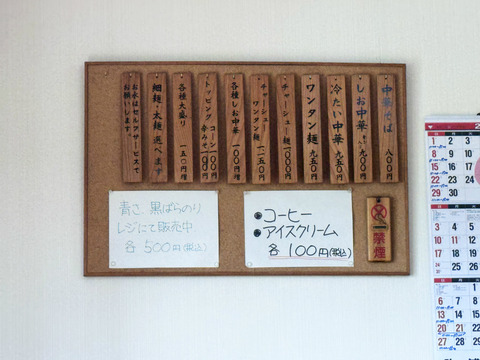 中華そば 八〇〇
しお中華 九〇〇
冷たい中華 九五〇
ワンタン麺 九五〇
チャーシュー麺 一〇〇〇
チャーシューワンタン麺 一一五〇
各種しお中華 一〇〇増
トッピング コーン 一〇〇
辛みそ 一〇〇
各種大盛り 一五〇増
細麺・太麺 選べます
お水はセルフサービスで
お願いします。
青さ、黒ばらのり
レジにて販売中
各500円(税込)
●コーヒー
●アイスクリーム
各100円(税込)
禁煙
1
8
15
22
29
9
16
23
30
3
10
17
24
6
13
20
27
7
14
21
28